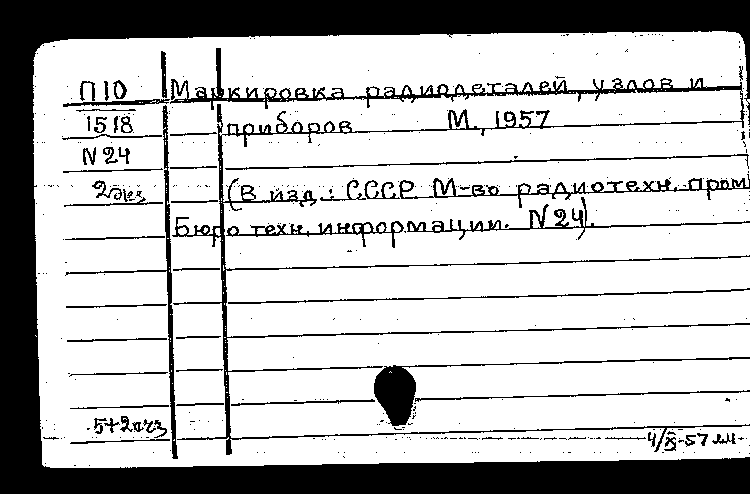 П10 Маркировка радиодеталей, узлов и
1518 приборов М., 1957
N 24
2 экз (В изд.: СССР. М-во радиотехн. пром
Бюро техн. информации. N 24).
5+2 экз
4/X-57